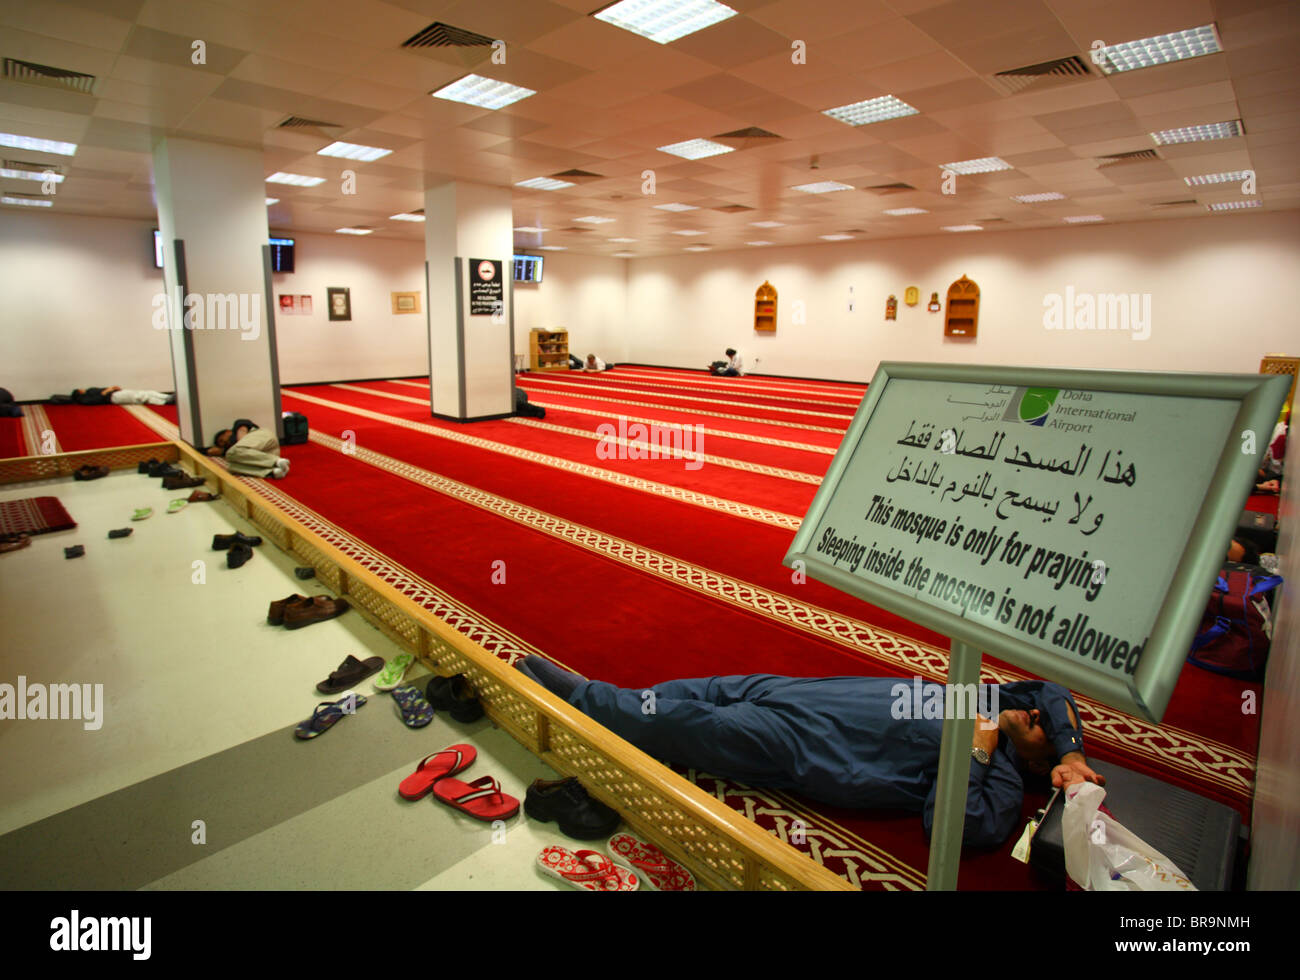 مطار
الدوحة
الدولي
Doha
International
Airport
هذا المسجد للصلاة فقط
ولا يسمح بالنوم بالداخل
This mosque is only for praying
Sleeping inside the mosque is not allowed
NO SLEEPING
alamy
Image ID: BR9NMH
www.alamy.com